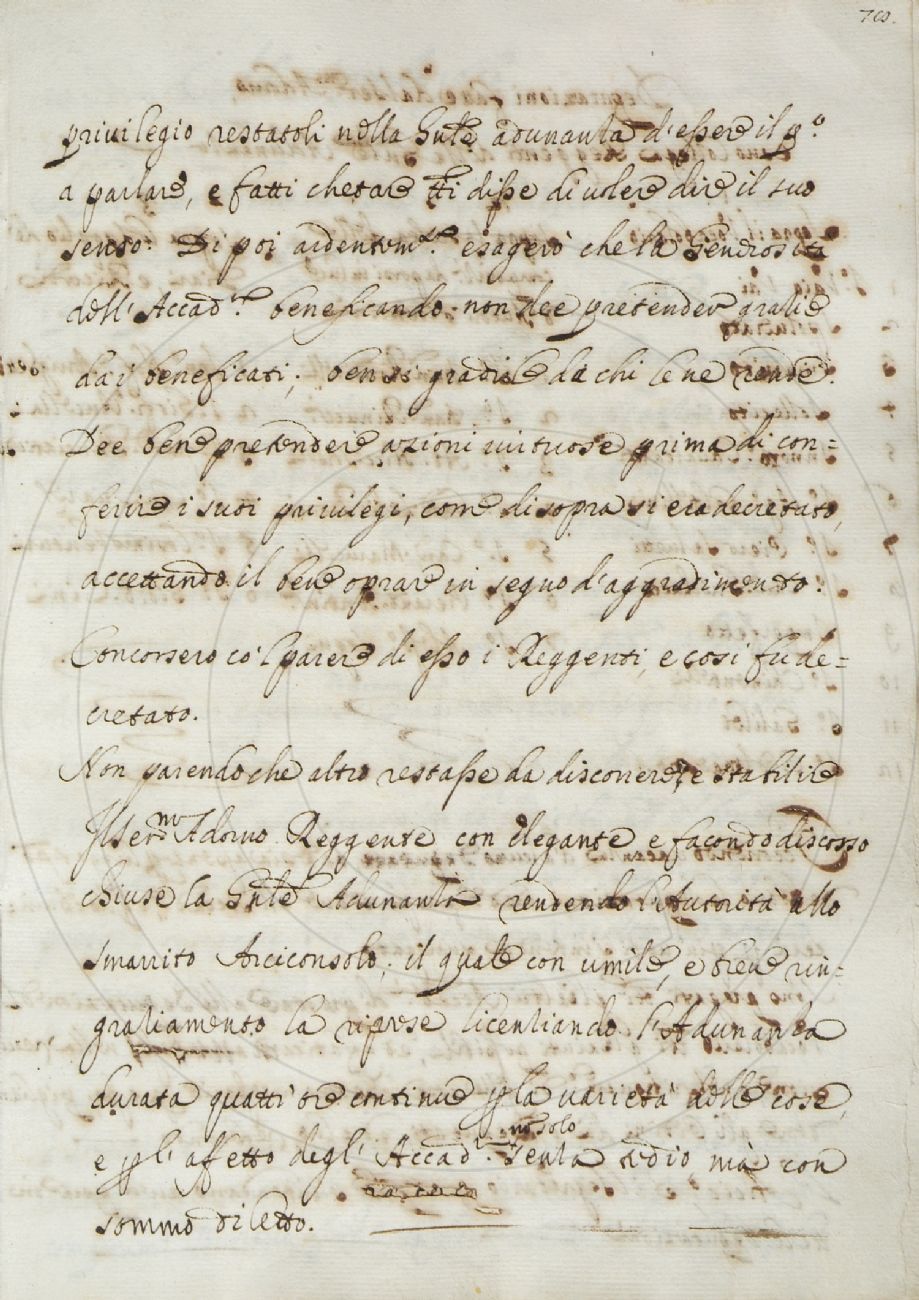 700.
privilegio restatoli nella Gnle adunanza d'essere il p.º
a parlare, e fatti chetare tti disse di volere dire il suo
senso. Di poi ardentem.te esagerò che la Generosità
dell'Accad.ª beneficando non dee pretender grazie
dai beneficati; bensì gradirle da chi le ne rende.
Dee bene pretendere azioni virtuose prima di con=
ferire i suoi privilegi, come di sopra si era decretato,
accettando il bene oprare in segno d'aggradimento.
Concorsero co'l parere di esso i Reggenti, e così fu de=
cretato.
Non parendo che altro restasse da discorrere, e stabilire
Il Ser.mo Adorno Reggente con elegante e facondo discorso
chiuse la Gnle Adunanza rendendo l'Autorità allo
smarrito Arciconsolo; il quale con umile, e breve rin=
graziamento la riprese licenziando l'Adunanza
durata quatti ore continue p la varietà delle cose,
e p l'affetto degl'Accad.i no solo senza tedio, mà con
sommo diletto.